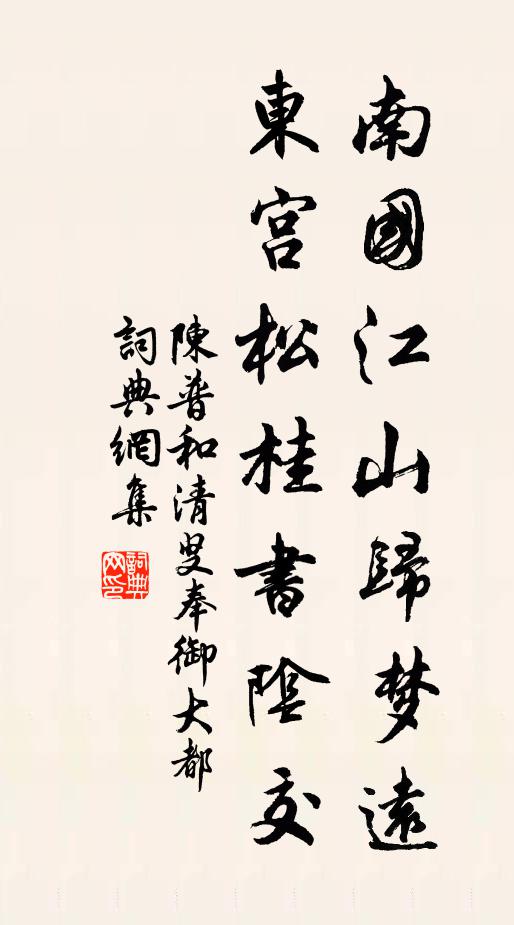 南國江山歸梦遠
東宫松桂書陰交
陳普和清叟奉御大都
詞典網集
詞典网印